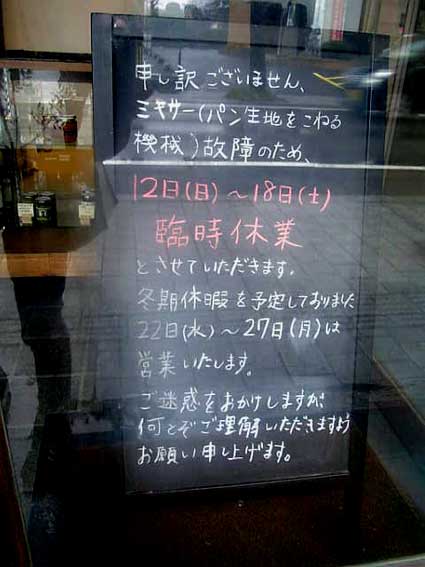 申し訳ございません、
ミキサー(パン生地をこねる
機械)故障のため、
12日(日)～18日(土)
臨時休業
とさせていただきます。
冬期休暇を予定しておりました
22日(水)～27日(月)は
営業いたします。
ご迷惑をおかけしますが、
何とぞご理解いただきますよう
お願い申し上げます。